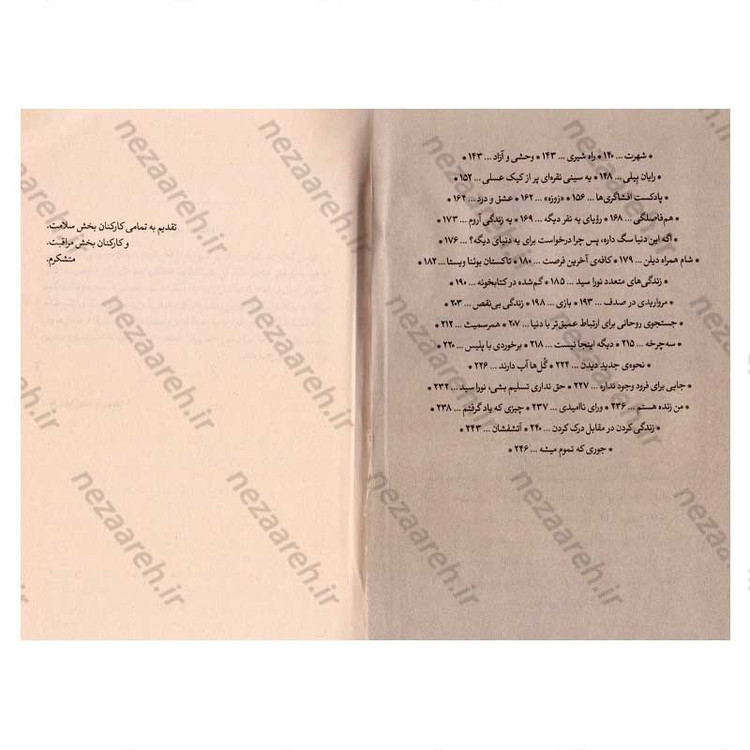 * شهرت ... ۱۴۰ * راه شیری ... ۱۴۳ * وحشی و آزاد ... ۱۴۳ *
* رایان بِیلی ... ۱۴۸ * یه سینی نقره‌ای پر از کیک عسلی ... ۱۵۲ *
* پادکست افشاگری‌ها ... ۱۵۶ * «زوزه» ... ۱۶۲ * عشق و درد ... ۱۶۴ *
* هم‌فاصلگی ... ۱۶۸ * رؤیای یه نفر دیگه ... ۱۶۹ * یه زندگی آروم ... ۱۷۳ *
* اگه این دنیا سگ داره، پس چرا درخواست برای یه دنیای دیگه؟ ... ۱۷۶ *
* شام همراه دیلن ... ۱۷۹ * کافه‌ی آخرین فرصت ... ۱۸۰ * تاکستان بوئنا ویستا ... ۱۸۲ *
* زندگی‌های متعدد نورا سید ... ۱۸۵ * گم‌شده در کتابخونه ... ۱۹۰ *
* مرواریدی در صدف ... ۱۹۳ * بازی ... ۱۹۸ * زندگی بی‌نقص ... ۲۰۳ *
* جستجوی روحانی برای ارتباط عمیق‌تر با دنیا ... ۲۰۷ * همرسمیت ... ۲۱۲ *
* سه‌چرخه ... ۲۱۵ * دیگه اینجا نیست ... ۲۱۸ * برخوردی با پلیس ... ۲۲۰ *
* نحوه‌ی جدیدِ دیدن ... ۲۲۴ * گُل‌ها آب دارند ... ۲۲۶ *
* جایی برای فرود وجود نداره ... ۲۲۷ * حق نداری تسلیم بشی، نورا سید ... ۲۳۲ *
* من زنده هستم ... ۲۳۶ * ورای ناامیدی ... ۲۳۷ * چیزی که یاد گرفتم ... ۲۳۸ *
* زندگی کردن در مقابل درک کردن ... ۲۴۰ * آتشفشان ... ۲۴۳ *
* جوری که تموم میشه ... ۲۴۶ *
تقدیم به تمامی کارکنان بخش سلامت.
و کارکنان بخش مراقبت.
متشکرم.
nezaareh.ir